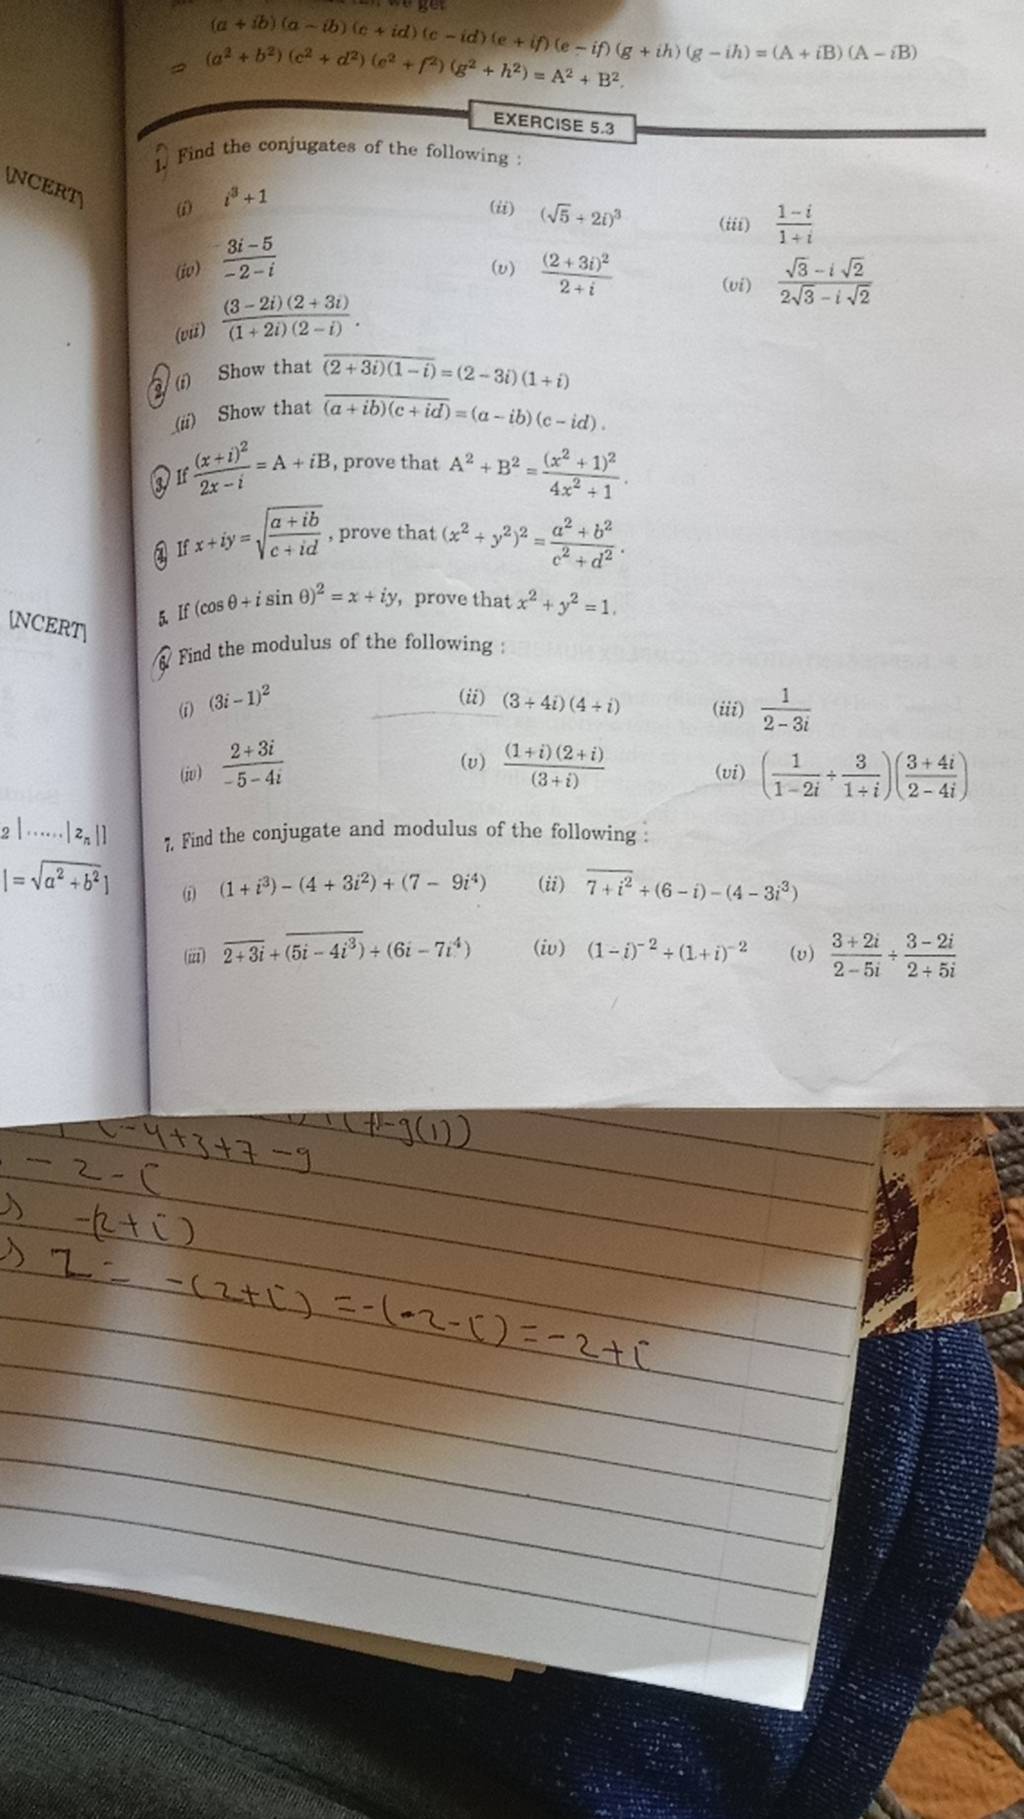 get
(a + ib) (a – ib) (c + id) (c – id) (e + if) (e – if) (g + ih) (g – ih) = (A + iB) (A – iB)
⇒ (a² + b²) (c² + d²) (e² + f²) (g² + h²) = A² + B².
EXERCISE 5.3
[NCERT]
1. Find the conjugates of the following :
(i) i³ + 1 (ii) (√5 + 2i)³ (iii) (1 – i)/(1 + i)
(iv) (3i – 5)/(–2 – i) (v) (2 + 3i)²/(2 + i) (vi) (√3 – i√2)/(2√3 – i√2)
(vii) (3 – 2i)(2 + 3i)/(1 + 2i)(2 – i) .
2. (i) Show that \overline{(2 + 3i)(1 – i)} = (2 – 3i) (1 + i)
(ii) Show that \overline{(a + ib)(c + id)} = (a – ib) (c – id) .
3. If (x + i)²/(2x – i) = A + iB, prove that A² + B² = (x² + 1)²/(4x² + 1) .
4. If x + iy = √((a + ib)/(c + id)) , prove that (x² + y²)² = (a² + b²)/(c² + d²) .
5. If (cos θ + i sin θ)² = x + iy, prove that x² + y² = 1.
[NCERT]
6. Find the modulus of the following :
(i) (3i – 1)² (ii) (3 + 4i) (4 + i) (iii) 1/(2 – 3i)
(iv) (2 + 3i)/(–5 – 4i) (v) (1 + i)(2 + i)/(3 + i) (vi) (1/(1 – 2i) + 3/(1 + i))((3 + 4i)/(2 – 4i))
2 |......| zₙ |]
| = √(a² + b²) ]
7. Find the conjugate and modulus of the following :
(i) (1 + i³) – (4 + 3i²) + (7 – 9i⁴) (ii) \overline{7 + i²} + (6 – i) – (4 – 3i³)
(iii) \overline{2 + 3i} + \overline{(5i – 4i³)} + (6i – 7i⁴) (iv) (1 – i)⁻² + (1 + i)⁻² (v) (3 + 2i)/(2 – 5i) + (3 – 2i)/(2 + 5i)
-4+3+7-9
-2-i
-(2+i)
Z = -(2+i) = -(-2-i) = -2+i